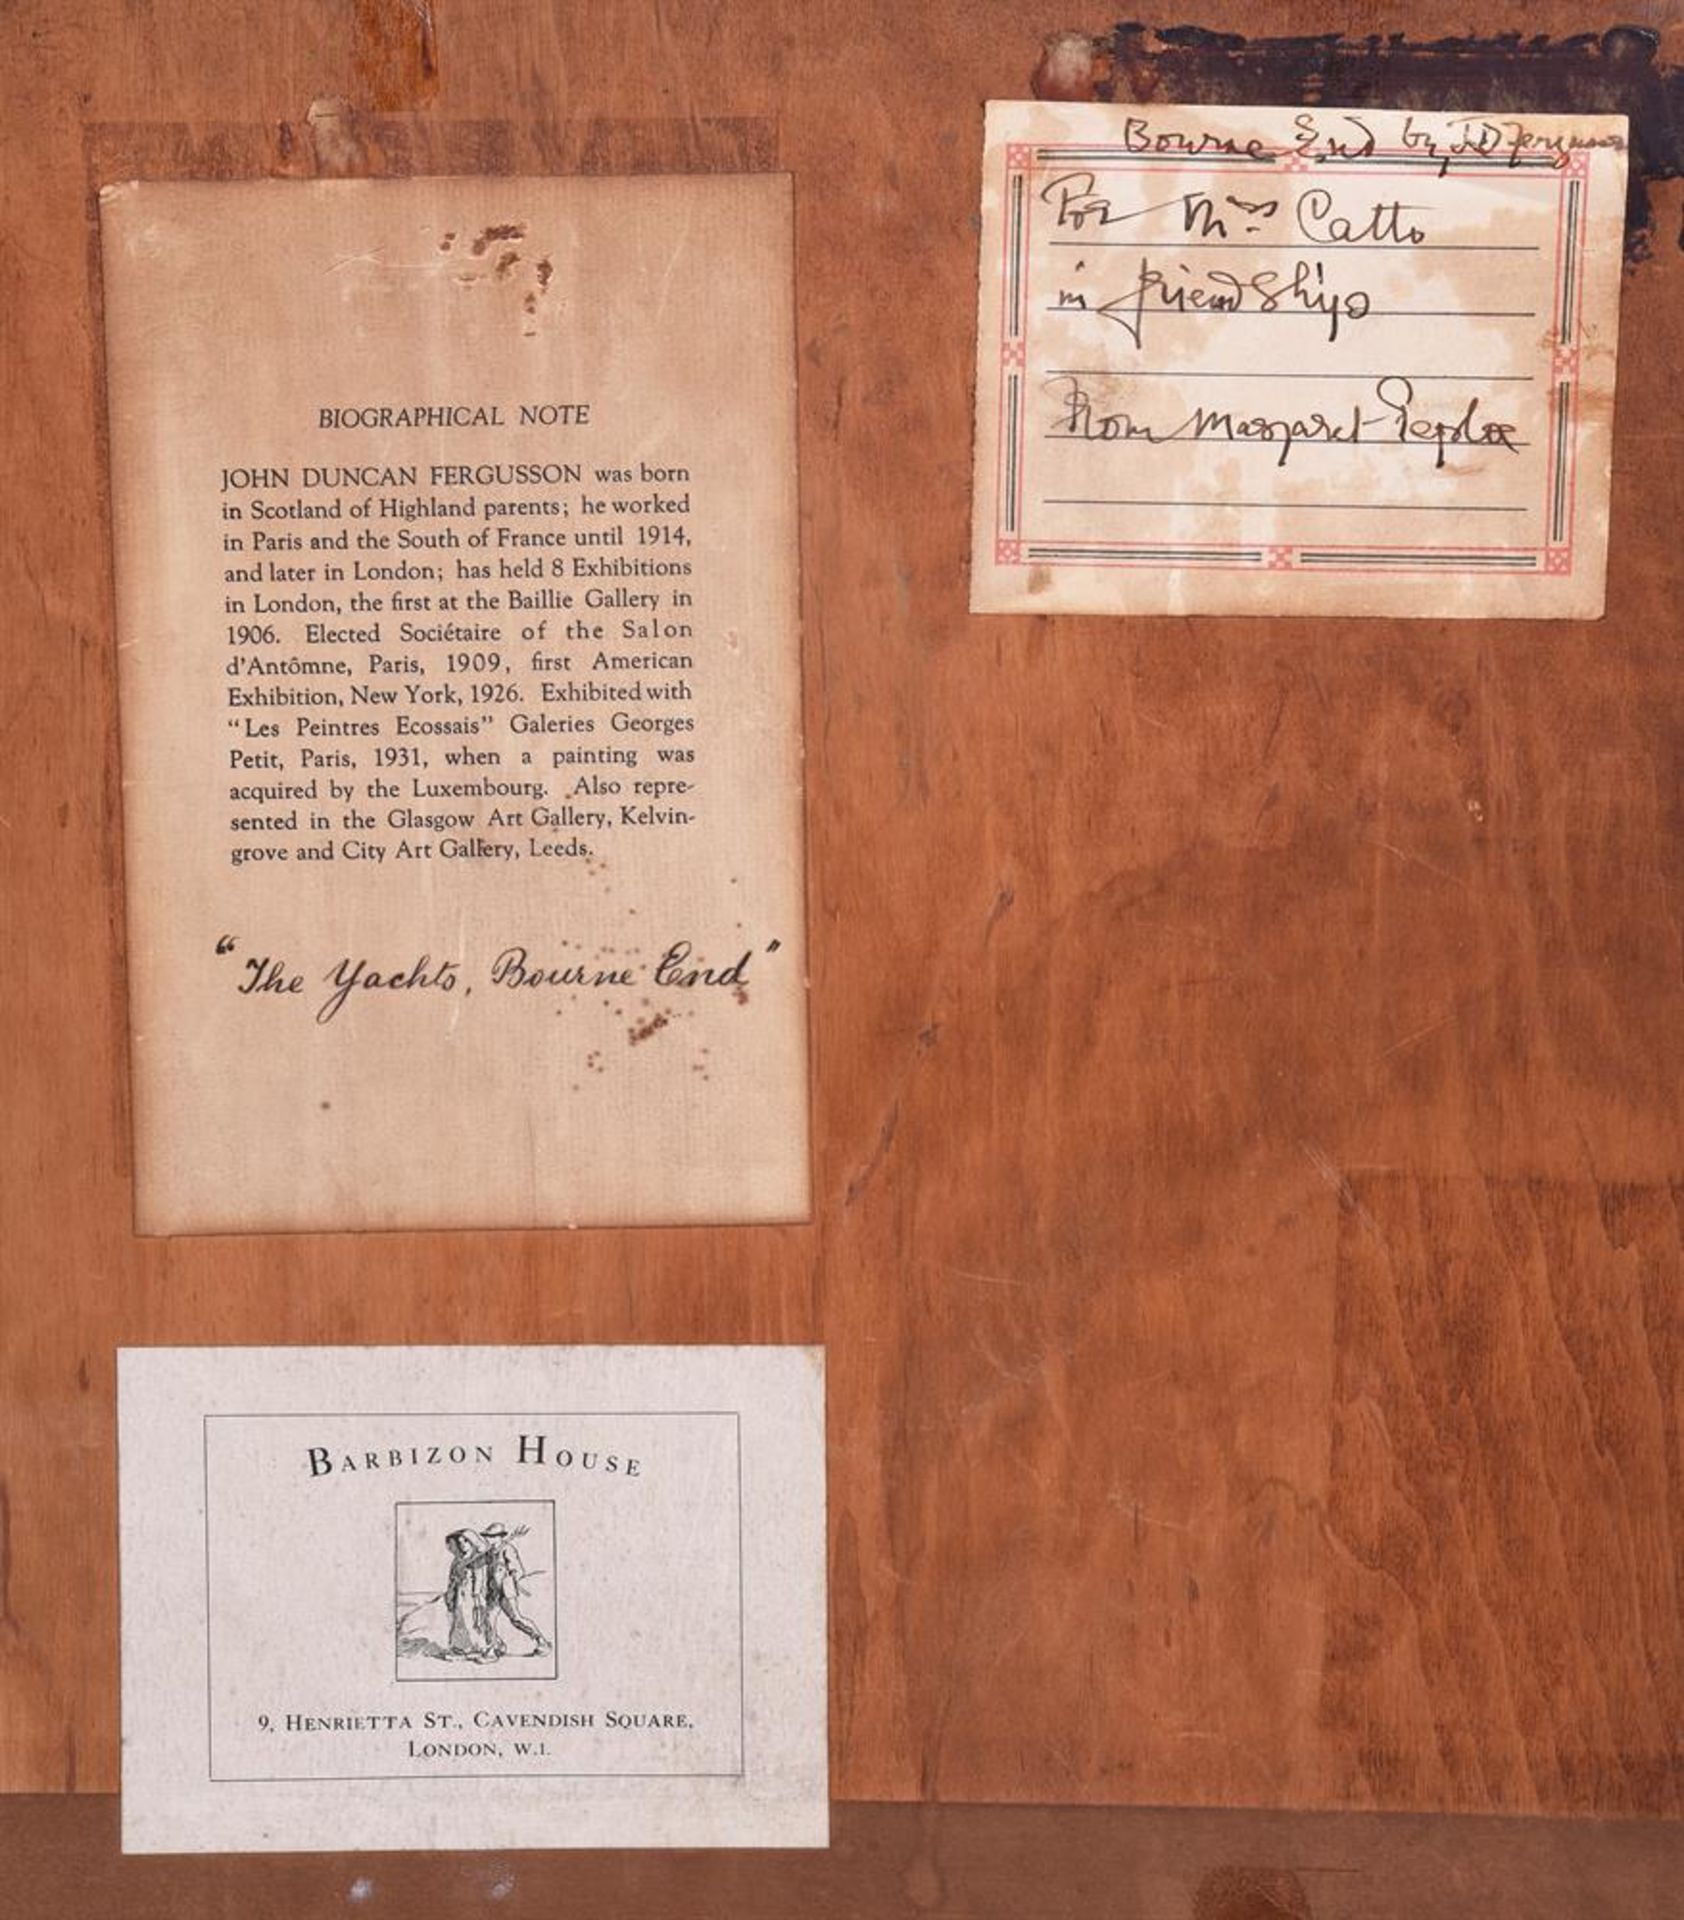 BIOGRAPHICAL NOTE
JOHN DUNCAN FERGUSSON was born
in Scotland of Highland parents; he worked
in Paris and the South of France until 1914,
and later in London; has held 8 Exhibitions
in London, the first at the Baillie Gallery in
1906. Elected Sociétaire of the Salon
d'Antômne, Paris, 1909, first American
Exhibition, New York, 1926. Exhibited with
"Les Peintres Ecossais" Galeries Georges
Petit, Paris, 1931, when a painting was
acquired by the Luxembourg. Also repre-
sented in the Glasgow Art Gallery, Kelvin-
grove and City Art Gallery, Leeds.
"The Yachts, Bourne End"
Bourne End by J.D Fergusson
For Mrs Catto
in friendship
From Margaret Peploe
BARBIZON HOUSE
9, HENRIETTA ST., CAVENDISH SQUARE,
LONDON, W.1.